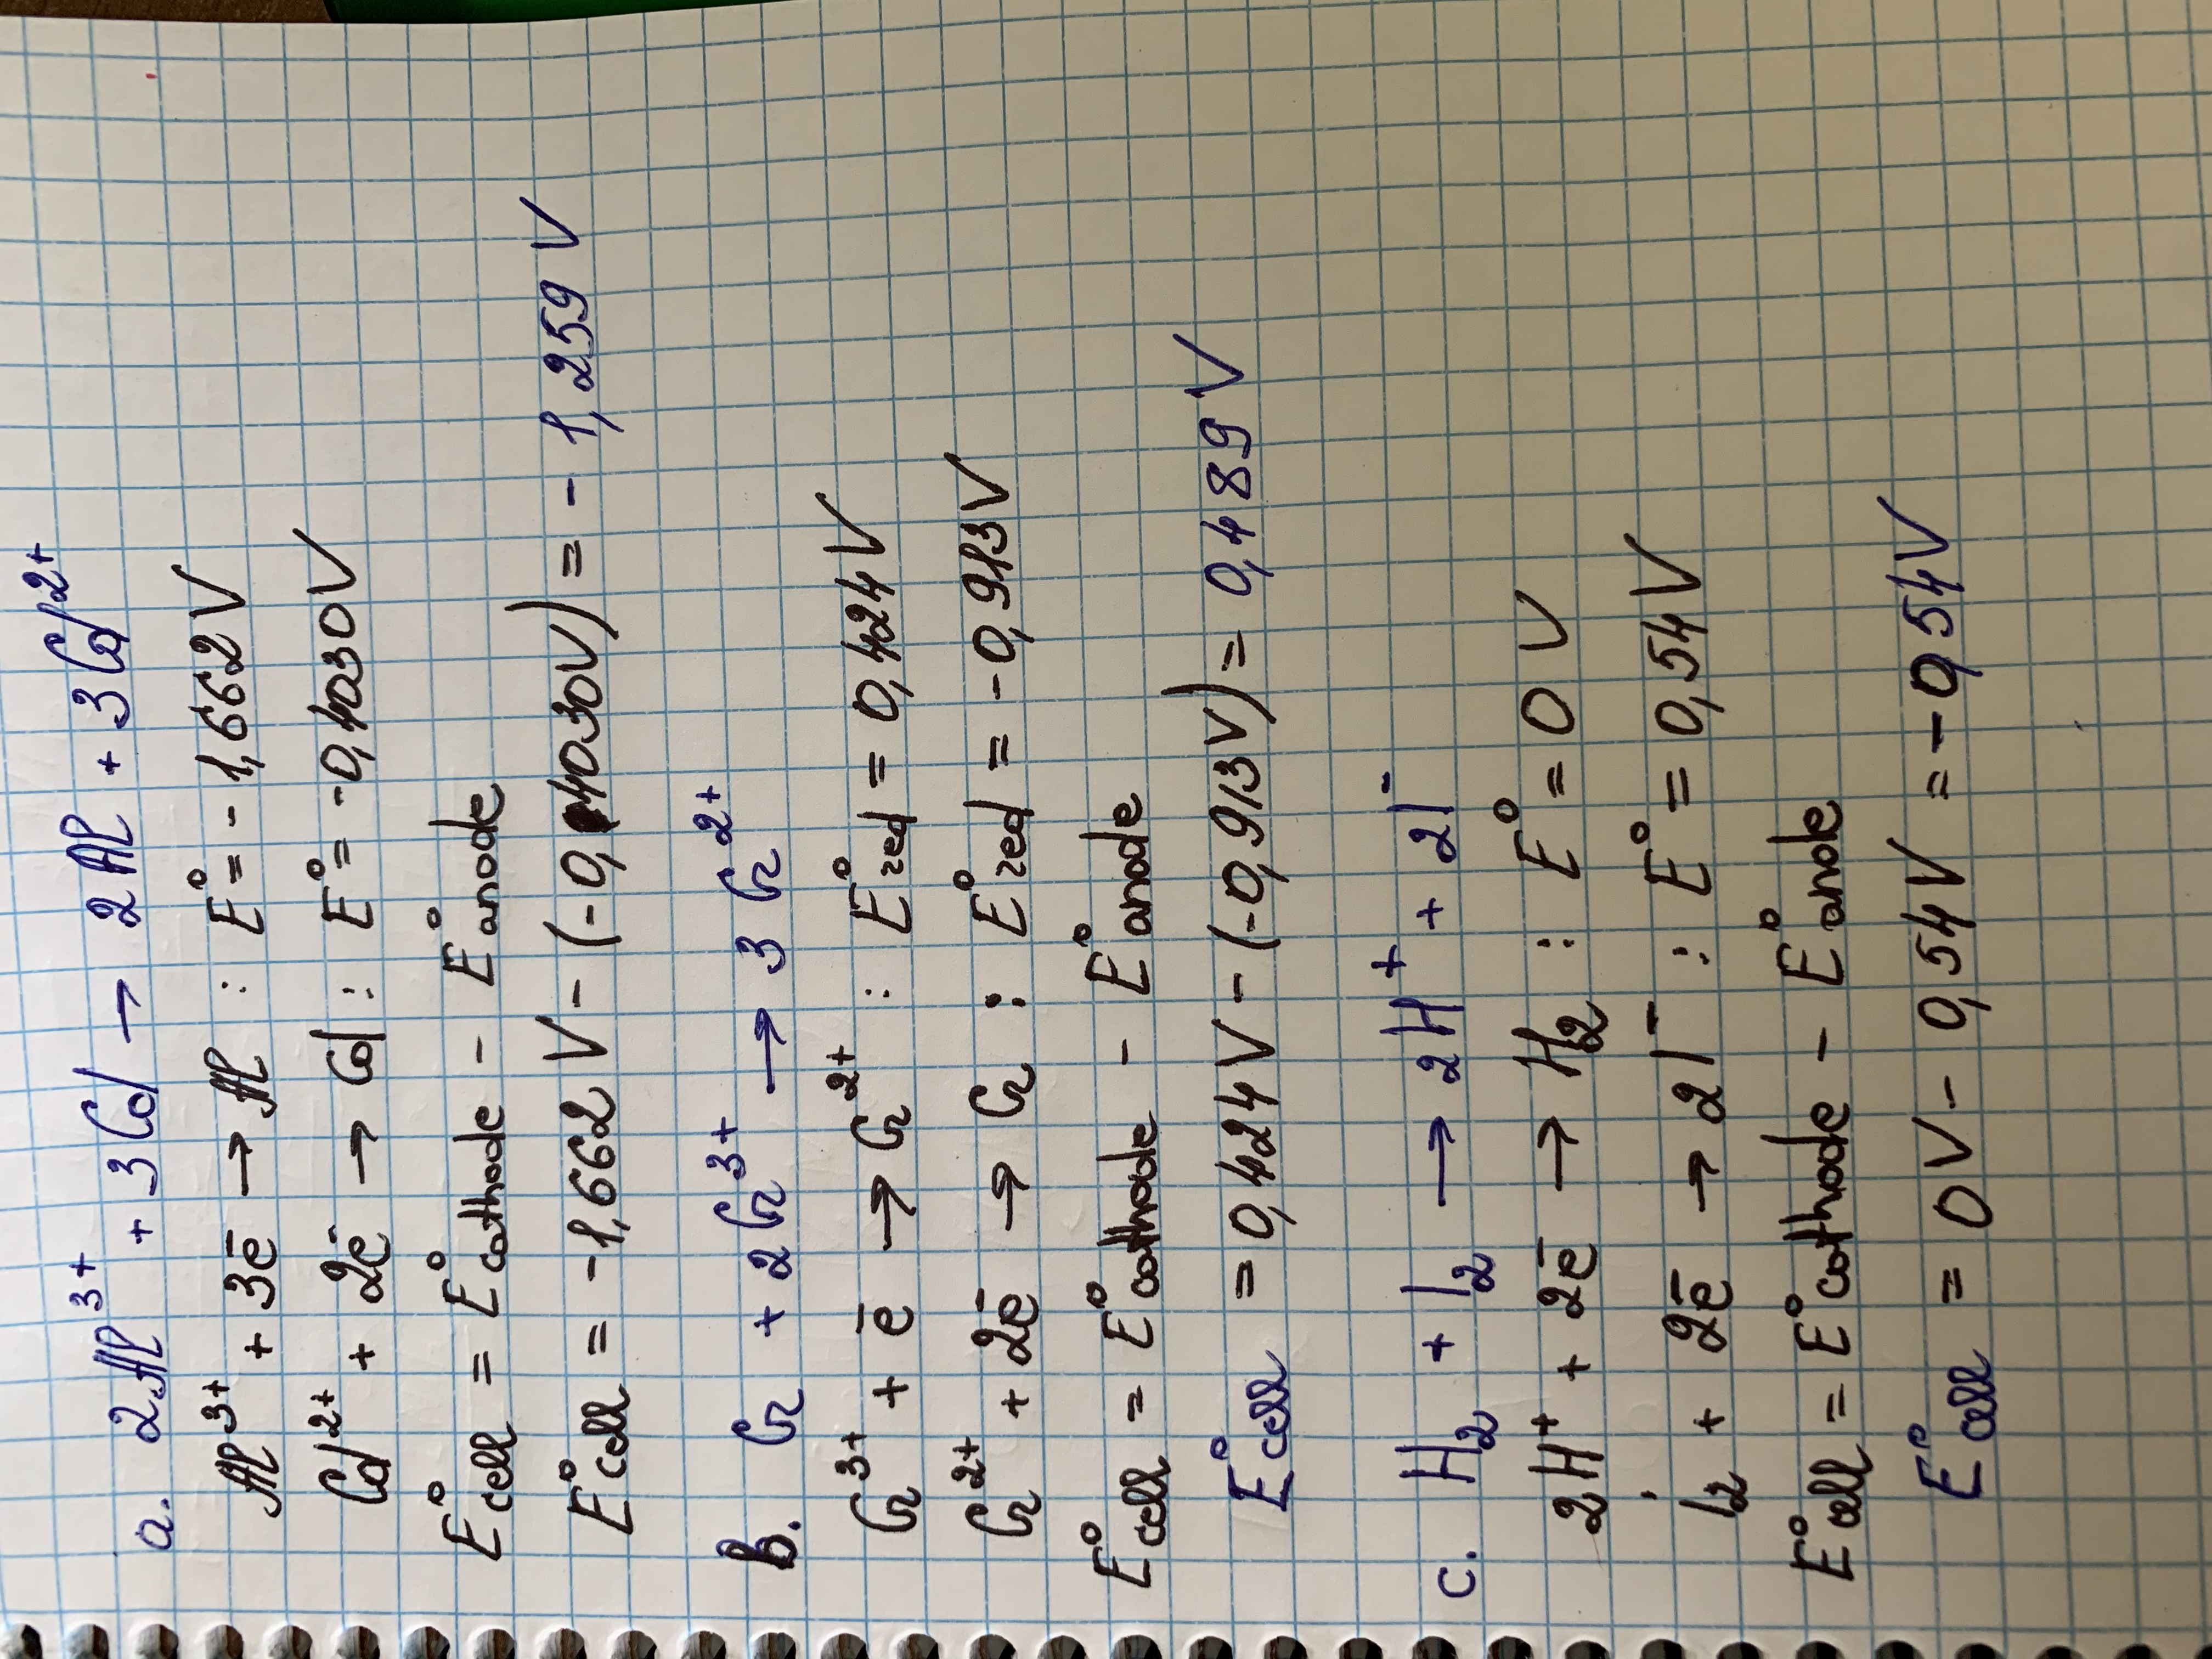 a. 2Al³⁺ + 3Cd → 2Al + 3Cd²⁺
Al³⁺ + 3ē → Al : E° = -1,662 V
Cd²⁺ + 2ē → Cd : E° = -0,4030V
E°cell = E°cathode - E°anode
E°cell = -1,662 V - (-0,4030V) = - 1,259 V
b. Cr + 2Cr³⁺ → 3 Cr²⁺
Cr³⁺ + ē → Cr²⁺ : E°red = 0,424 V
Cr²⁺ + 2ē → Cr : E°red = -0,913V
E°cell = E°cathode - E°anode
E°cell = 0,424 V - (-0,913V) = 0,489 V
c. H₂ + I₂ → 2H⁺ + 2I⁻
2H⁺ + 2ē → H₂ : E° = 0 V
I₂ + 2ē → 2I⁻ : E° = 0,54 V
E°cell = E°cathode - E°anode
E°cell = 0V - 0,54V = -0,54V